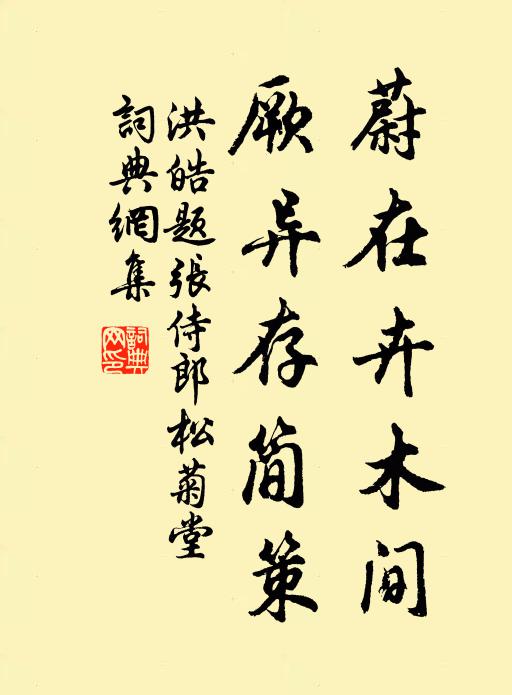 蔚在卉木间
厥异存简策
洪皓题張侍郎松菊堂
詞典網集
詞典网印